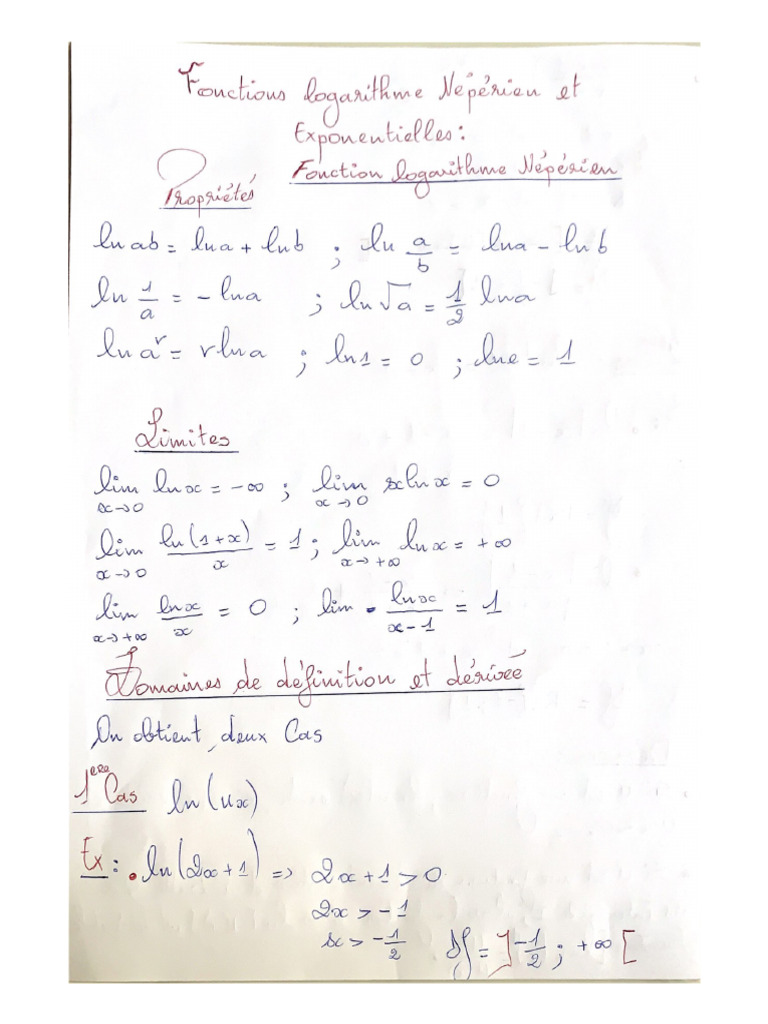 Fonctions logarithme Népérien et
Exponentielles:
Fonction logarithme Népérien
Propriétés
ln ab = lna + lnb ; ln a/b = lna - lnb
ln 1/a = -lna ; ln√a = 1/2 lna
ln aʳ = rlna ; ln1 = 0 ; lne = 1
Limites
lim x→0 lnx = -∞ ; lim x→0 xlnx = 0
lim x→0 ln(1+x)/x = 1 ; lim x→+∞ lnx = +∞
lim x→+∞ lnx/x = 0 ; lim lnx/x-1 = 1
Domaines de définition et dérivée
On obtient deux Cas
1ere Cas ln(ux)
Ex : • ln(2x+1) => 2x+1>0
2x > -1
x > -1/2 Df = ]-1/2 ; +∞ [